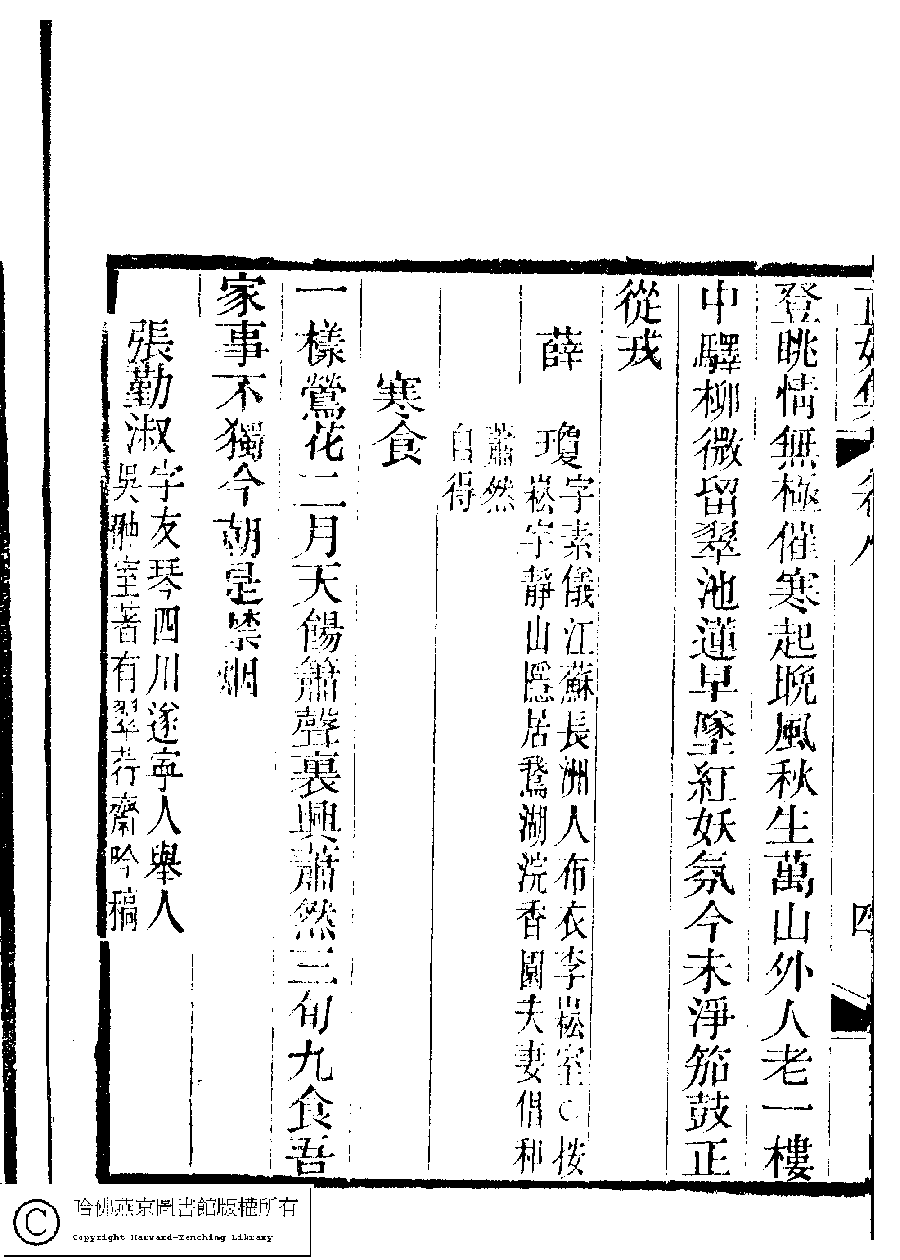 登眺情無極催寒起晚風秋生萬山外人老一樓
中驛柳微留翠池蓮早墜紅妖氛今未淨笳鼓正
從戎
薛瓊字素儀江蘇長洲人布衣李崧室○按
崧字靜山隱居鵞湖浣香園夫妻倡和
蕭然
自得
寒食
一樣鶯花二月天餳簫聲裏興蕭然三旬九食吾
家事不獨今朝是禁烟
張勤淑字友琴四川遂寧人舉人
吳 室著有翠荇齋吟稿
哈佛燕京圖書館版權所有
Copyright Harvard-Yenching Library